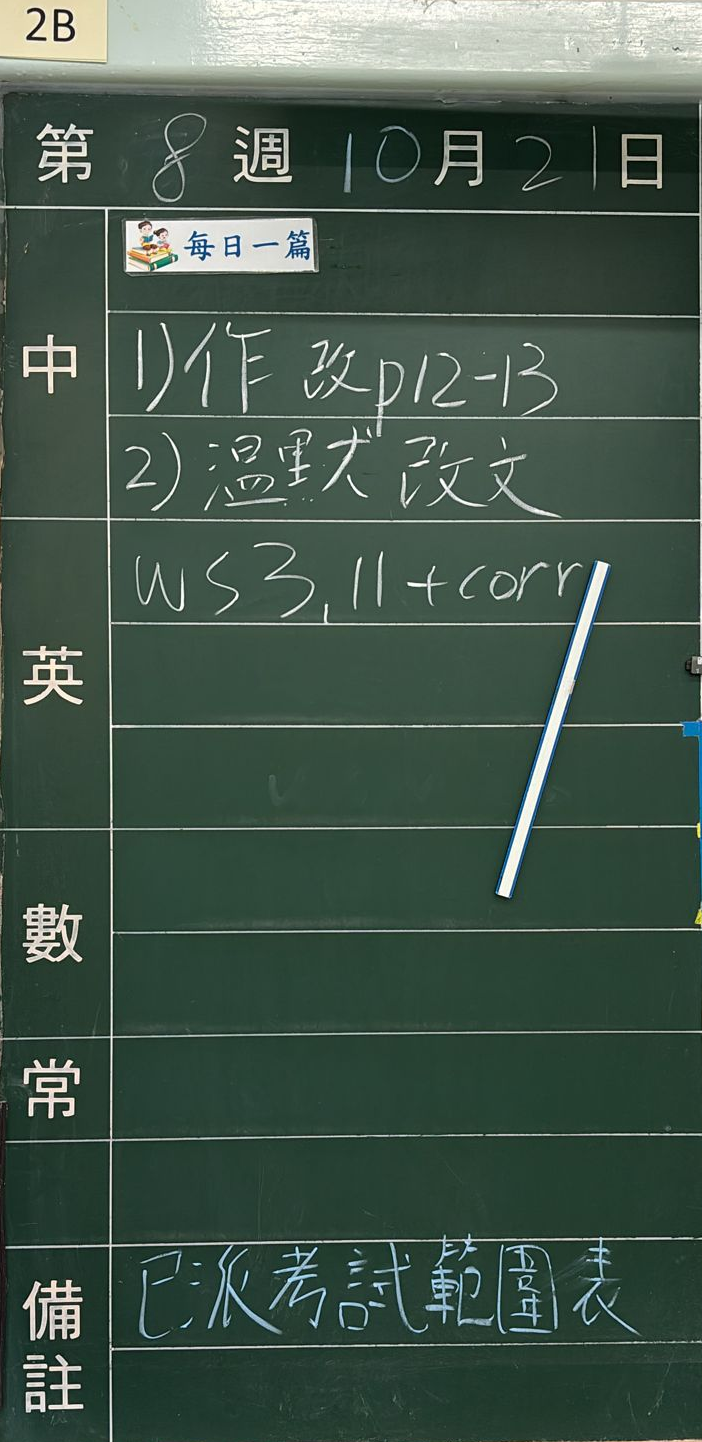 2B
第 8 週 10 月 21 日
每日一篇
中
1) 作 改 p12-13
2) 溫默 改文
英
WS3, 11 + corr
數
常
備註
已派考試範圍表